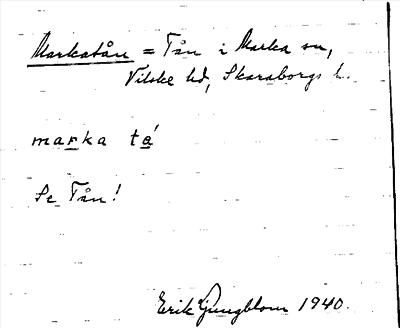 Markatån = Tån i Marka sn,
Vilske hd, Skaraborgs l.
marka tá
Se Tån!
Erik Ljungblom 1940.